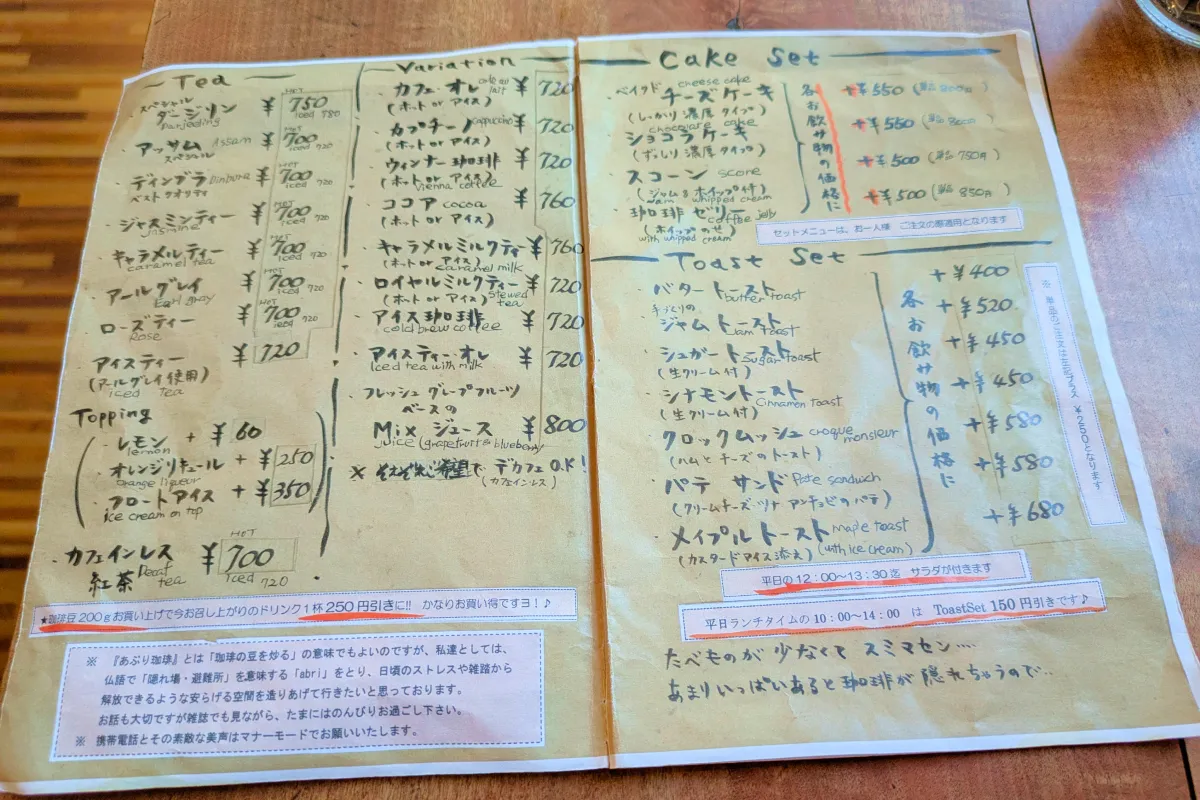 Tea
スペシャル
ダージリン ¥ HOT 750
Darjeeling iced 780
アッサム Assam ¥ HOT 700
スペシャル iced 720
ディンブラ Dinbura ¥ HOT 700
ベストクオリティ iced 720
ジャスミンティー ¥ HOT 700
Jasmine iced 720
キャラメルティー ¥ HOT 700
caramel tea iced 720
アールグレイ ¥ HOT 700
Earl gray iced 720
ローズティー ¥ HOT 700
Rose iced 720
アイスティー ¥ 720
(アールグレイ使用)
iced tea
Topping
・レモン + ¥60
lemon
・オレンジリキュール + ¥250
orange liqueur
・フロートアイス + ¥350
ice cream on top
・カフェインレス ¥ HOT 700
紅茶 Decaf tea iced 720
Variation
・カフェ・オレ cafe au lait ¥ 720
(ホット or アイス)
・カプチーノ cappuccino ¥ 720
(ホット or アイス)
・ウィンナー珈琲 ¥ 720
(ホット or アイス) Vienna coffee
・ココア cocoa ¥ 760
(ホット or アイス)
・キャラメルミルクティー ¥ 760
(ホット or アイス) caramel milk
・ロイヤルミルクティー ¥ 720
(ホット or アイス) stewed tea
・アイス珈琲 ¥ 720
cold brew coffee
・アイスティー・オレ ¥ 720
Iced tea with milk
・フレッシュグレープフルーツ
ベースの
Mix ジュース ¥800
juice (grapefruit & blueberry)
※ それぞれご希望で デカフェ O.K!
(カフェインレス)
★珈琲豆200gお買い上げで今お召し上がりのドリンク1杯250円引きに!! かなりお買い得ですヨ!♪
※ 『あぶり珈琲』とは「珈琲の豆を炒る」の意味でもよいのですが、私達としては、
仏語で「隠れ場・避難所」を意味する「abri」をとり、日頃のストレスや雑踏から
解放できるような安らげる空間を造りあげて行きたいと思っております。
お話も大切ですが雑誌でも見ながら、たまにはのんびりお過ごし下さい。
※ 携帯電話とその素敵な美声はマナーモードでお願いいたします。
Cake Set
cheese cake
・ベイクド チーズケーキ +¥550 (単品 800円)
(しっかり濃厚タイプ)
chocolate cake
・ショコラケーキ +¥550 (単品 800円)
(ずっしり濃厚タイプ)
・スコーン score +¥500 (単品 750円)
(ジャム & ホイップ付)
Jam whipped cream
・珈琲ゼリー coffee jelly +¥500 (単品 850円)
(ホイップのせ)
with whipped cream
各お飲み物の価格に
セットメニューは、お一人様 ご注文の際適用となります
Toast Set
・バタートースト +¥400
butter toast
手づくりの
・ジャムトースト +¥520
Jam toast
・シュガートースト +¥450
(生クリーム付) Sugar toast
・シナモントースト +¥450
(生クリーム付) Cinnamon toast
・クロックムッシュ croque monsieur +¥580
(ハムとチーズのトースト)
・パテサンド Pate sandwich +¥580
(クリームチーズ・ツナ アンチョビのパテ)
・メイプルトースト maple toast +¥680
(カスタードアイス添え) (with ice cream)
各お飲み物の価格に
※ 単品のご注文は左記プラス ¥250となります
平日の12:00〜13:30迄 サラダが付きます
平日ランチタイムの10:00〜14:00 は ToastSet 150円引きです♪
たべものが 少なくて スミマセン‥‥
あまりいっぱいあると珈琲が 隠れちゃうので‥